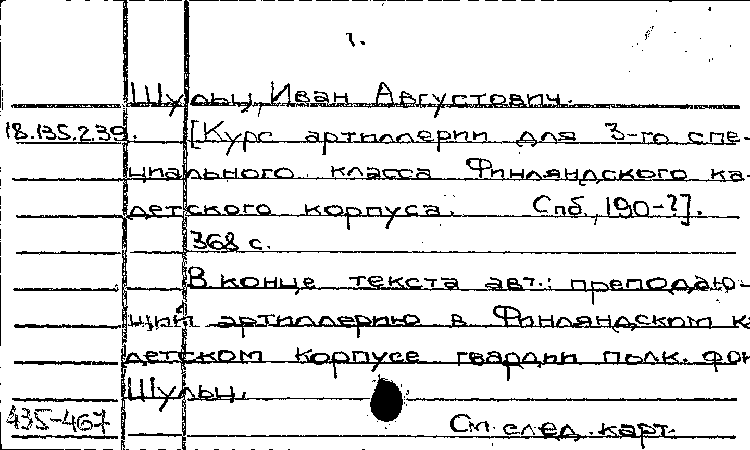 1.
Шульц, Иван Августович.
18.135.239. [Курс артиллерии для 3-го спе-
циального класса Финляндского ка-
детского корпуса. Спб, 190-?].
368 с.
В конце текста авт.: преподаю-
щий артиллерию в Финляндском ка
детском корпусе гвардии полк. фон
Шульц.
435-467 См. след. карт.